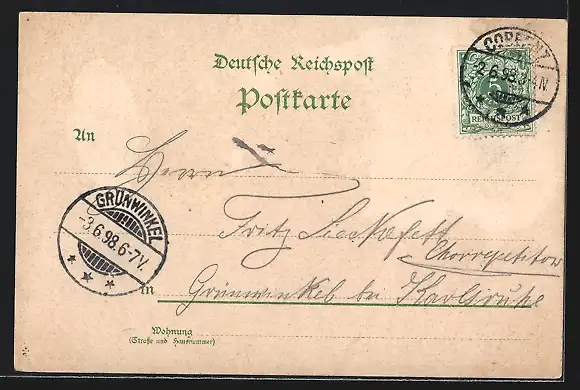 Deutsche Reichspost
Postkarte
COBLENZ
2.6.98.
REICHSPOST
An
Herrn
Fritz
Chorrepetitor
GRÜNWINKEL
-3.6.98.6-7V.
in Grünwinkel bei Karlsruhe
Wohnung
(Straße und Hausnummer)